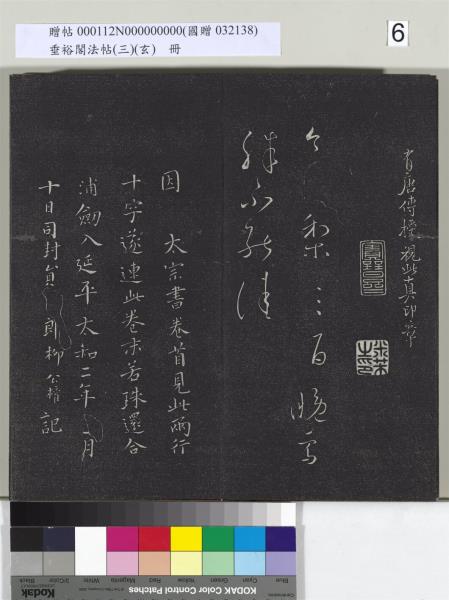 贈帖 000112N000000000(國贈 032138)
垂裕閣法帖(三)(玄) 冊
6
有唐傳授視此真印章
今 梨三百晚
殊不能佳
因 太宗書卷首見此兩行
十字遂連此卷末若珠還合
浦劍入延平太和二年 月
十日司封員 郎柳公權記
Blue
Cyan
Green
Yellow
Red
Magenta
White
3/Color
Black
KODAK Color Control Patches
Kodak